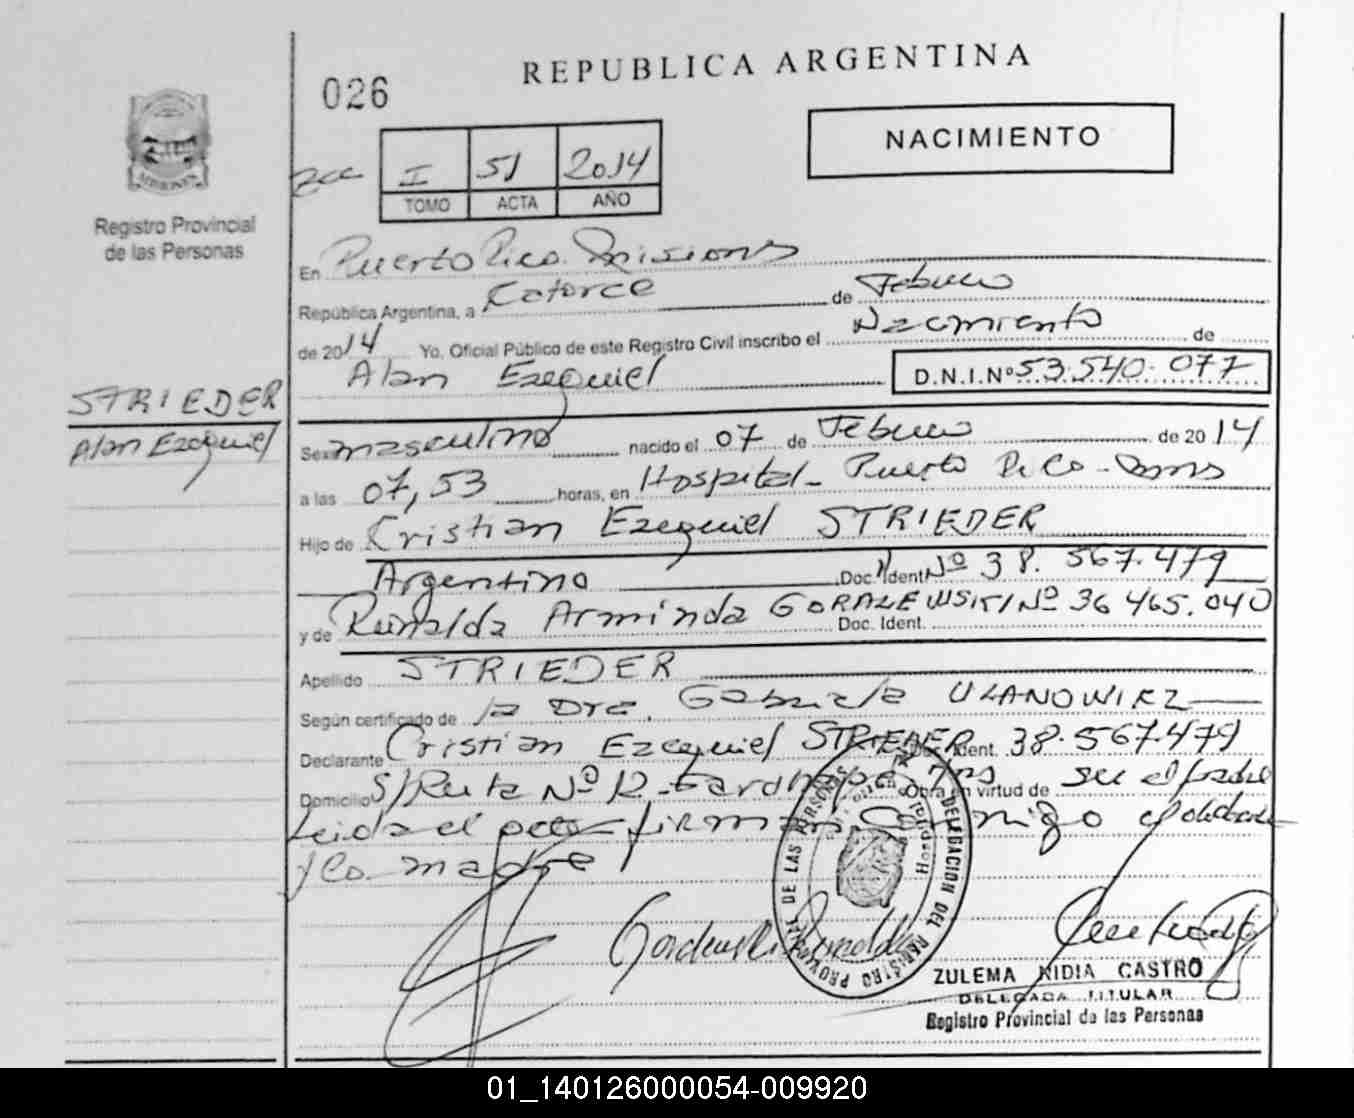 026
REPUBLICA ARGENTINA
NACIMIENTO
I 51 2014
TOMO ACTA AÑO
MISIONES
Registro Provincial
de las Personas
En Puerto Rico. Misiones
República Argentina, a Catorce de Febrero
de 2014 Yo, Oficial Público de este Registro Civil inscribo el Nacimiento de
Alan Ezequiel D.N.I.Nº 53.540.077
STRIEDER
Alan Ezequiel
Sexo masculino nacido el 07 de Febrero de 2014
a las 07,53 horas, en Hospital - Puerto Rico - Mnes
Hijo de Cristian Ezequiel STRIEDER
Argentino Doc. Ident. Nº 38.567.479
y de Reinalda Arminda GORALEWSKI Nº 36.465.040
Doc. Ident.
Apellido STRIEDER
Según certificado de la Dra. Gabriela ULANOWIEZ
Declarante Cristian Ezequiel STRIEDER Doc. Ident. 38.567.479
Domicilio S/Ruta Nº 12 - Mns Obra en virtud de ser el padre
Leida el acta firman conmigo el declarante
y la madre
REGISTRO PROVINCIAL DE LAS PERSONAS
DELEGACION DEL
Hospital
ZULEMA NIDIA CASTRO
DELEGADA TITULAR
Registro Provincial de las Personas
01_140126000054-009920